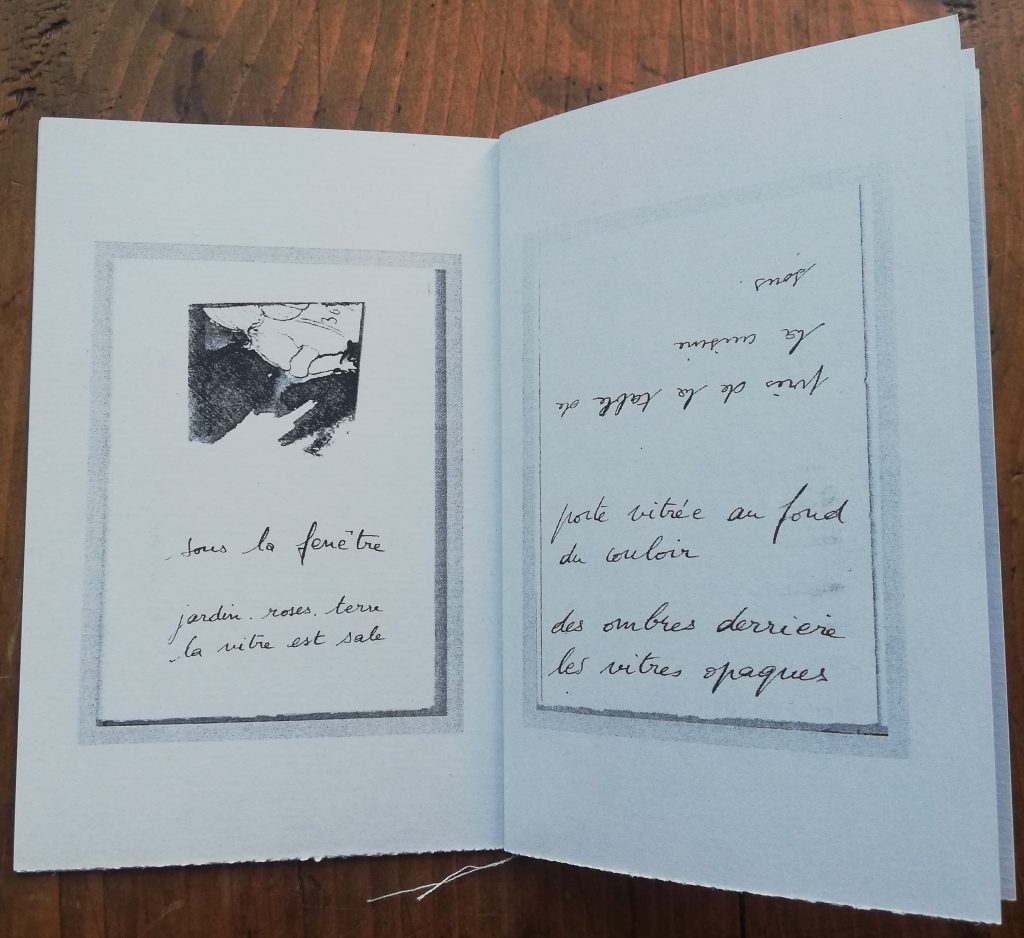 sous la fenêtre
jardin. roses. terre
la vitre est sale
près de la table de
la cuisine
sous
porte vitrée au fond
du couloir
des ombres derriere
les vitres opaques